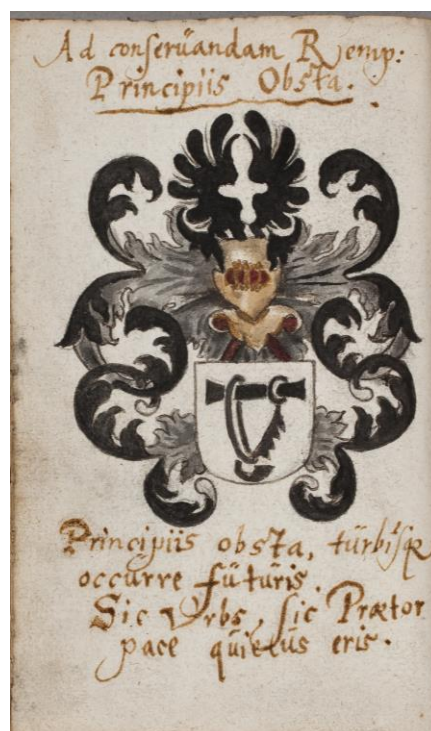 Ad conserüandam Remp:
Principiis Obsta.
Principiis obsta, türbisq
occurre fütüris.
Sic Vrbs, sic Prætor
pace quietus eris.